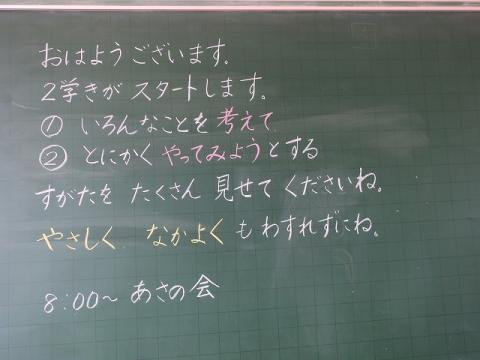 おはようございます。
2学きが スタートします。
① いろんなことを 考えて
② とにかく やってみようとする
すがたを たくさん 見せて くださいね。
やさしく なかよく も わすれずにね。
8:00~ あさの会